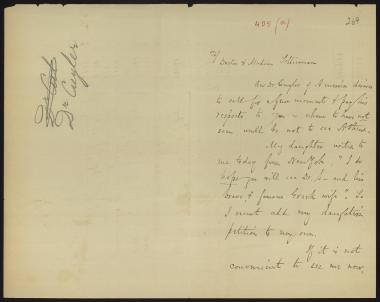 405 (a)
269
Dr Cuyler
To/ Doctor & Madam Schliemann
Rev. Dr Cuyler of America desires
to call for a few moments & pay his
respects to you — whom to have not
seen would be not to see Athens.
My daughter writes to
me today from New York, "I do
hope you will see Dr. S— and his
brave & famous Greek wife". So
I must add my daughter's
petition to my own.
If it is not
convenient to see me now,